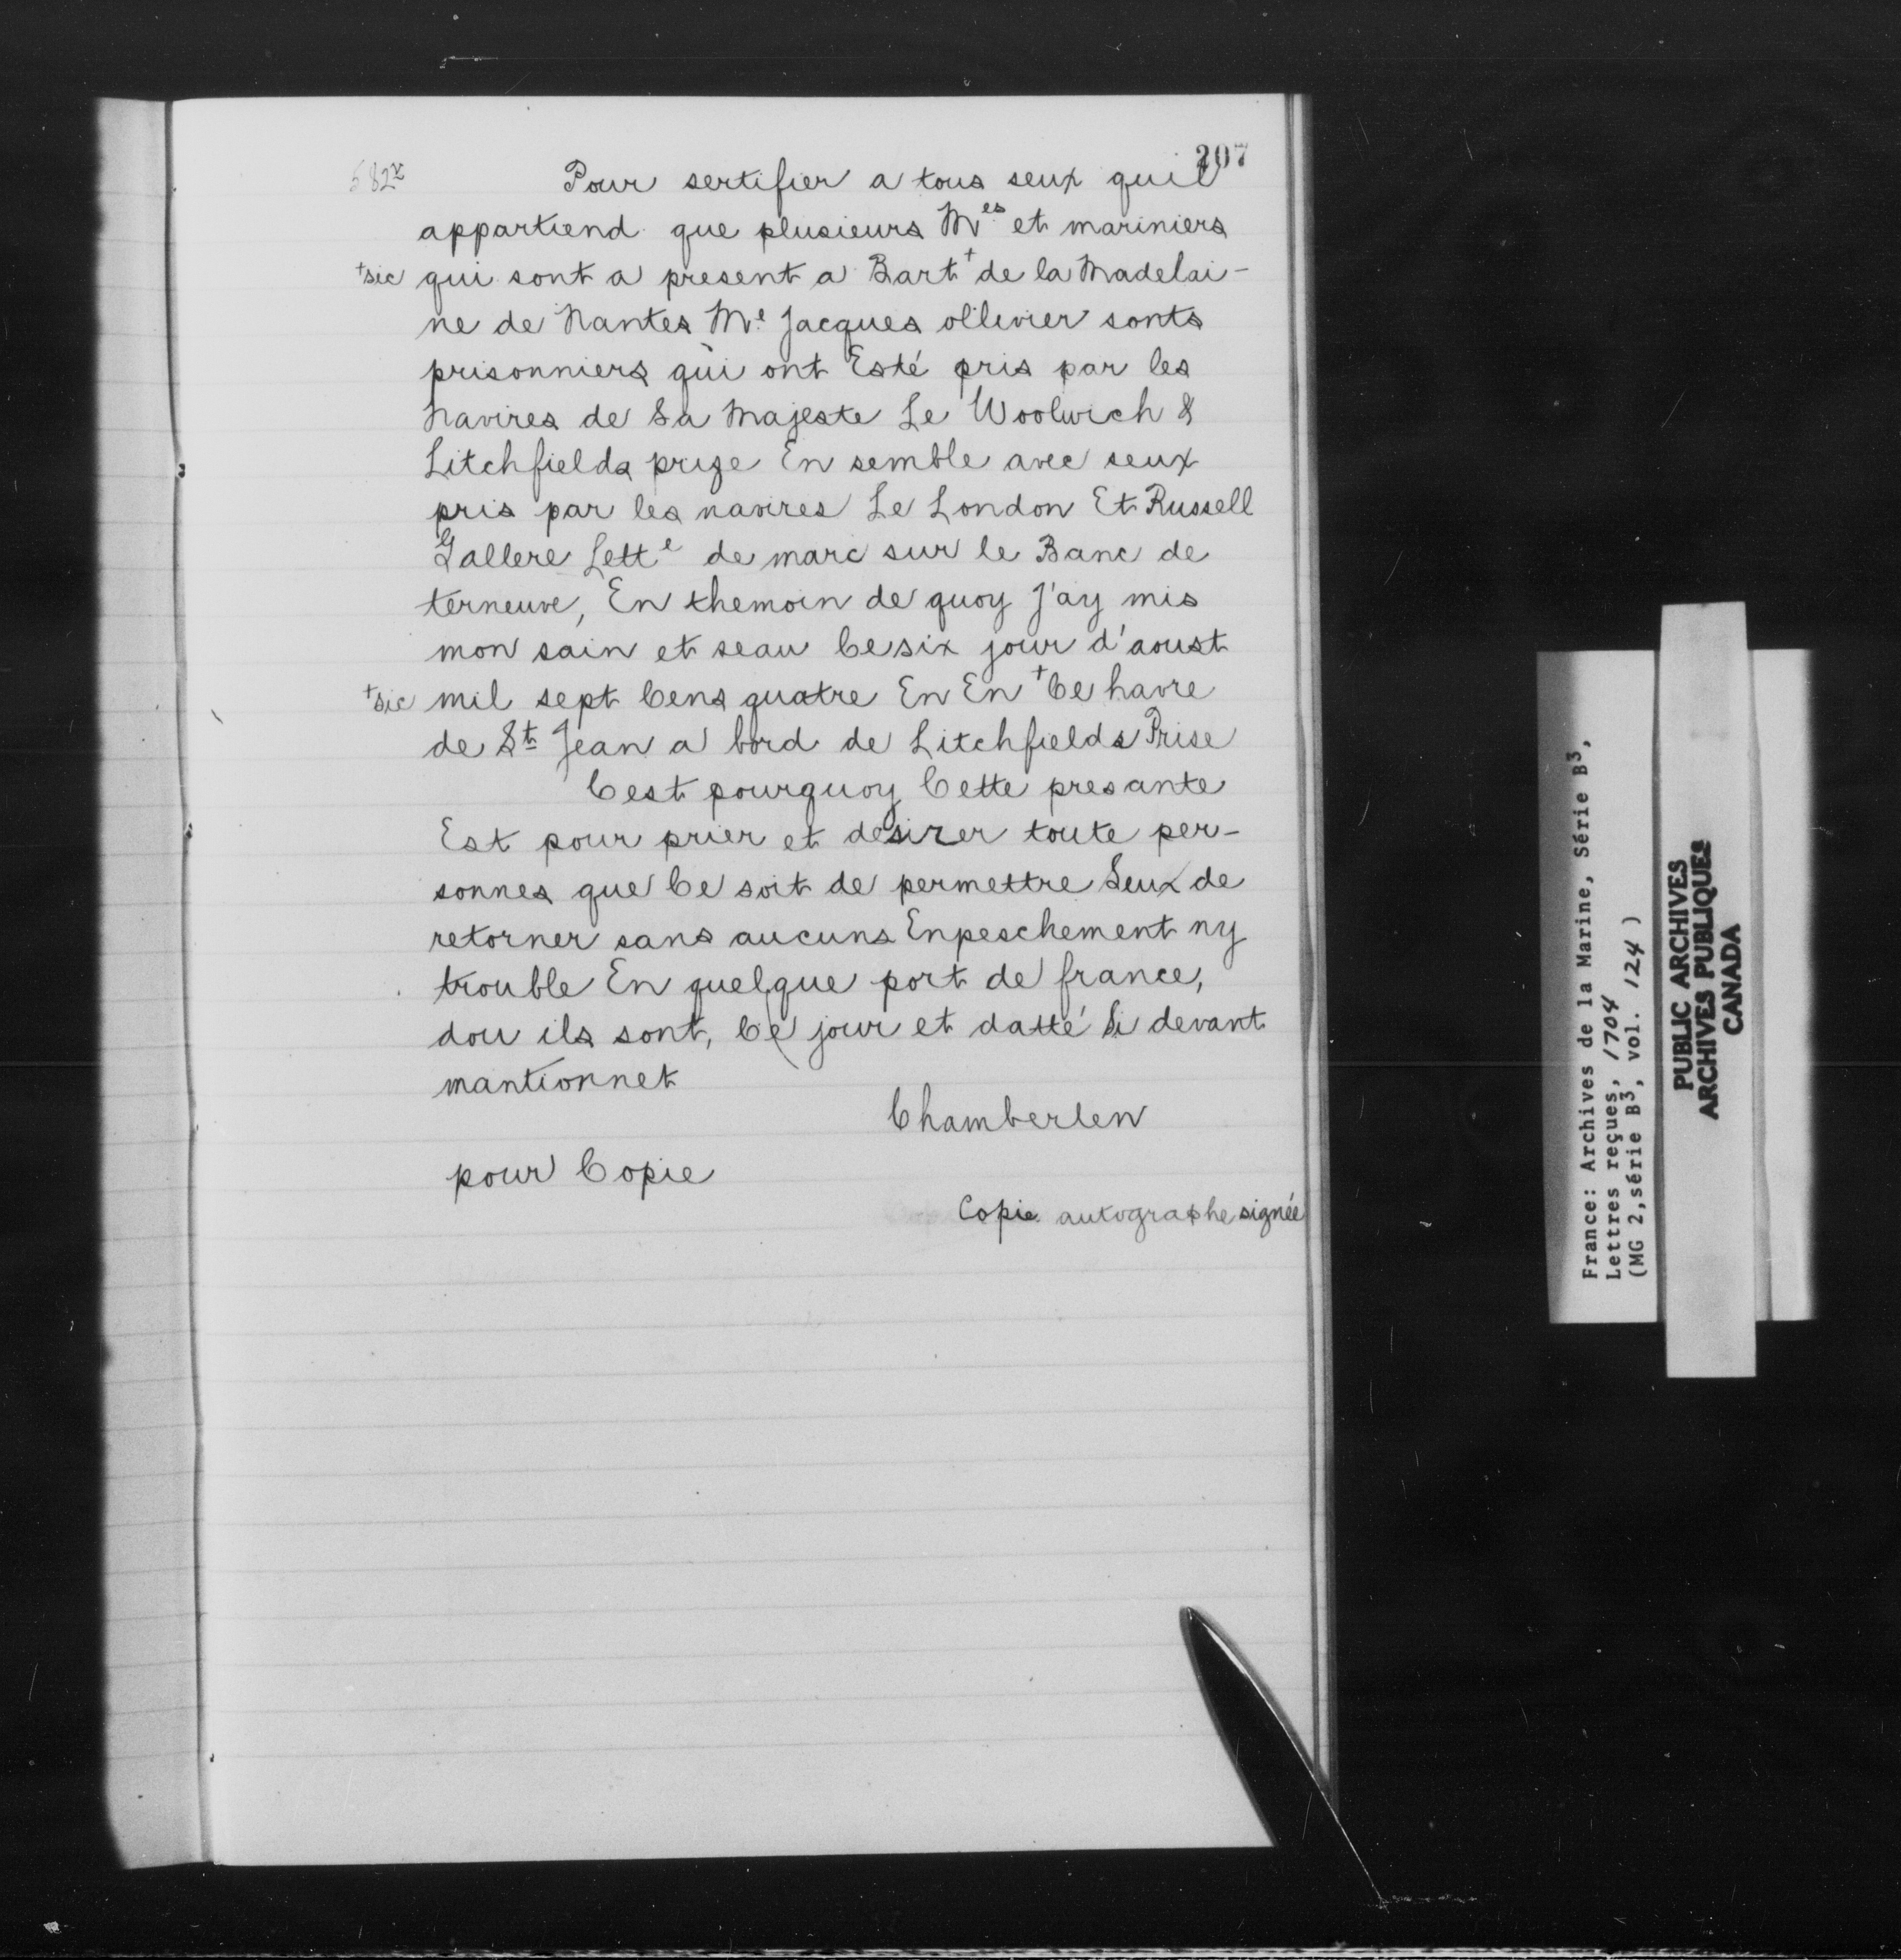 207
682r
Pour sertifier a tous seux quil
appartiend que plusieurs Mes et mariniers
+sic qui sont a present a Bart+ de la Madelai-
ne de Nantes Me Jacques ollivier sonts
prisonniers qui ont Esté pris par les
Navires de Sa Majeste Le Woolwich &
Litchfields prize En semble avec seux
pris par les navires Le London Et Russell
Gallere Lette de marc sur le Banc de
terneuve, En themoin de quoy J'ay mis
mon sain et seau Ce six jour d'aoust
+sic mil sept Cens quatre En En+ Ce havre
de St Jean a bord de Litchfields Prise
C'est pourquoy Cette presante
Est pour prier et desirer toute per-
sonnes que Ce soit de permettre Seux de
retorner sans aucuns Enpeschement ny
trouble En quelque port de france,
dou ils sont, Ce jour et datté Si devant
mantionnet
Chamberlen
pour Copie
Copie autographe signée
France: Archives de la Marine, Série B3,
Lettres reçues, 1704
(MG 2, série B3, vol. 124)
PUBLIC ARCHIVES
ARCHIVES PUBLIQUES
CANADA